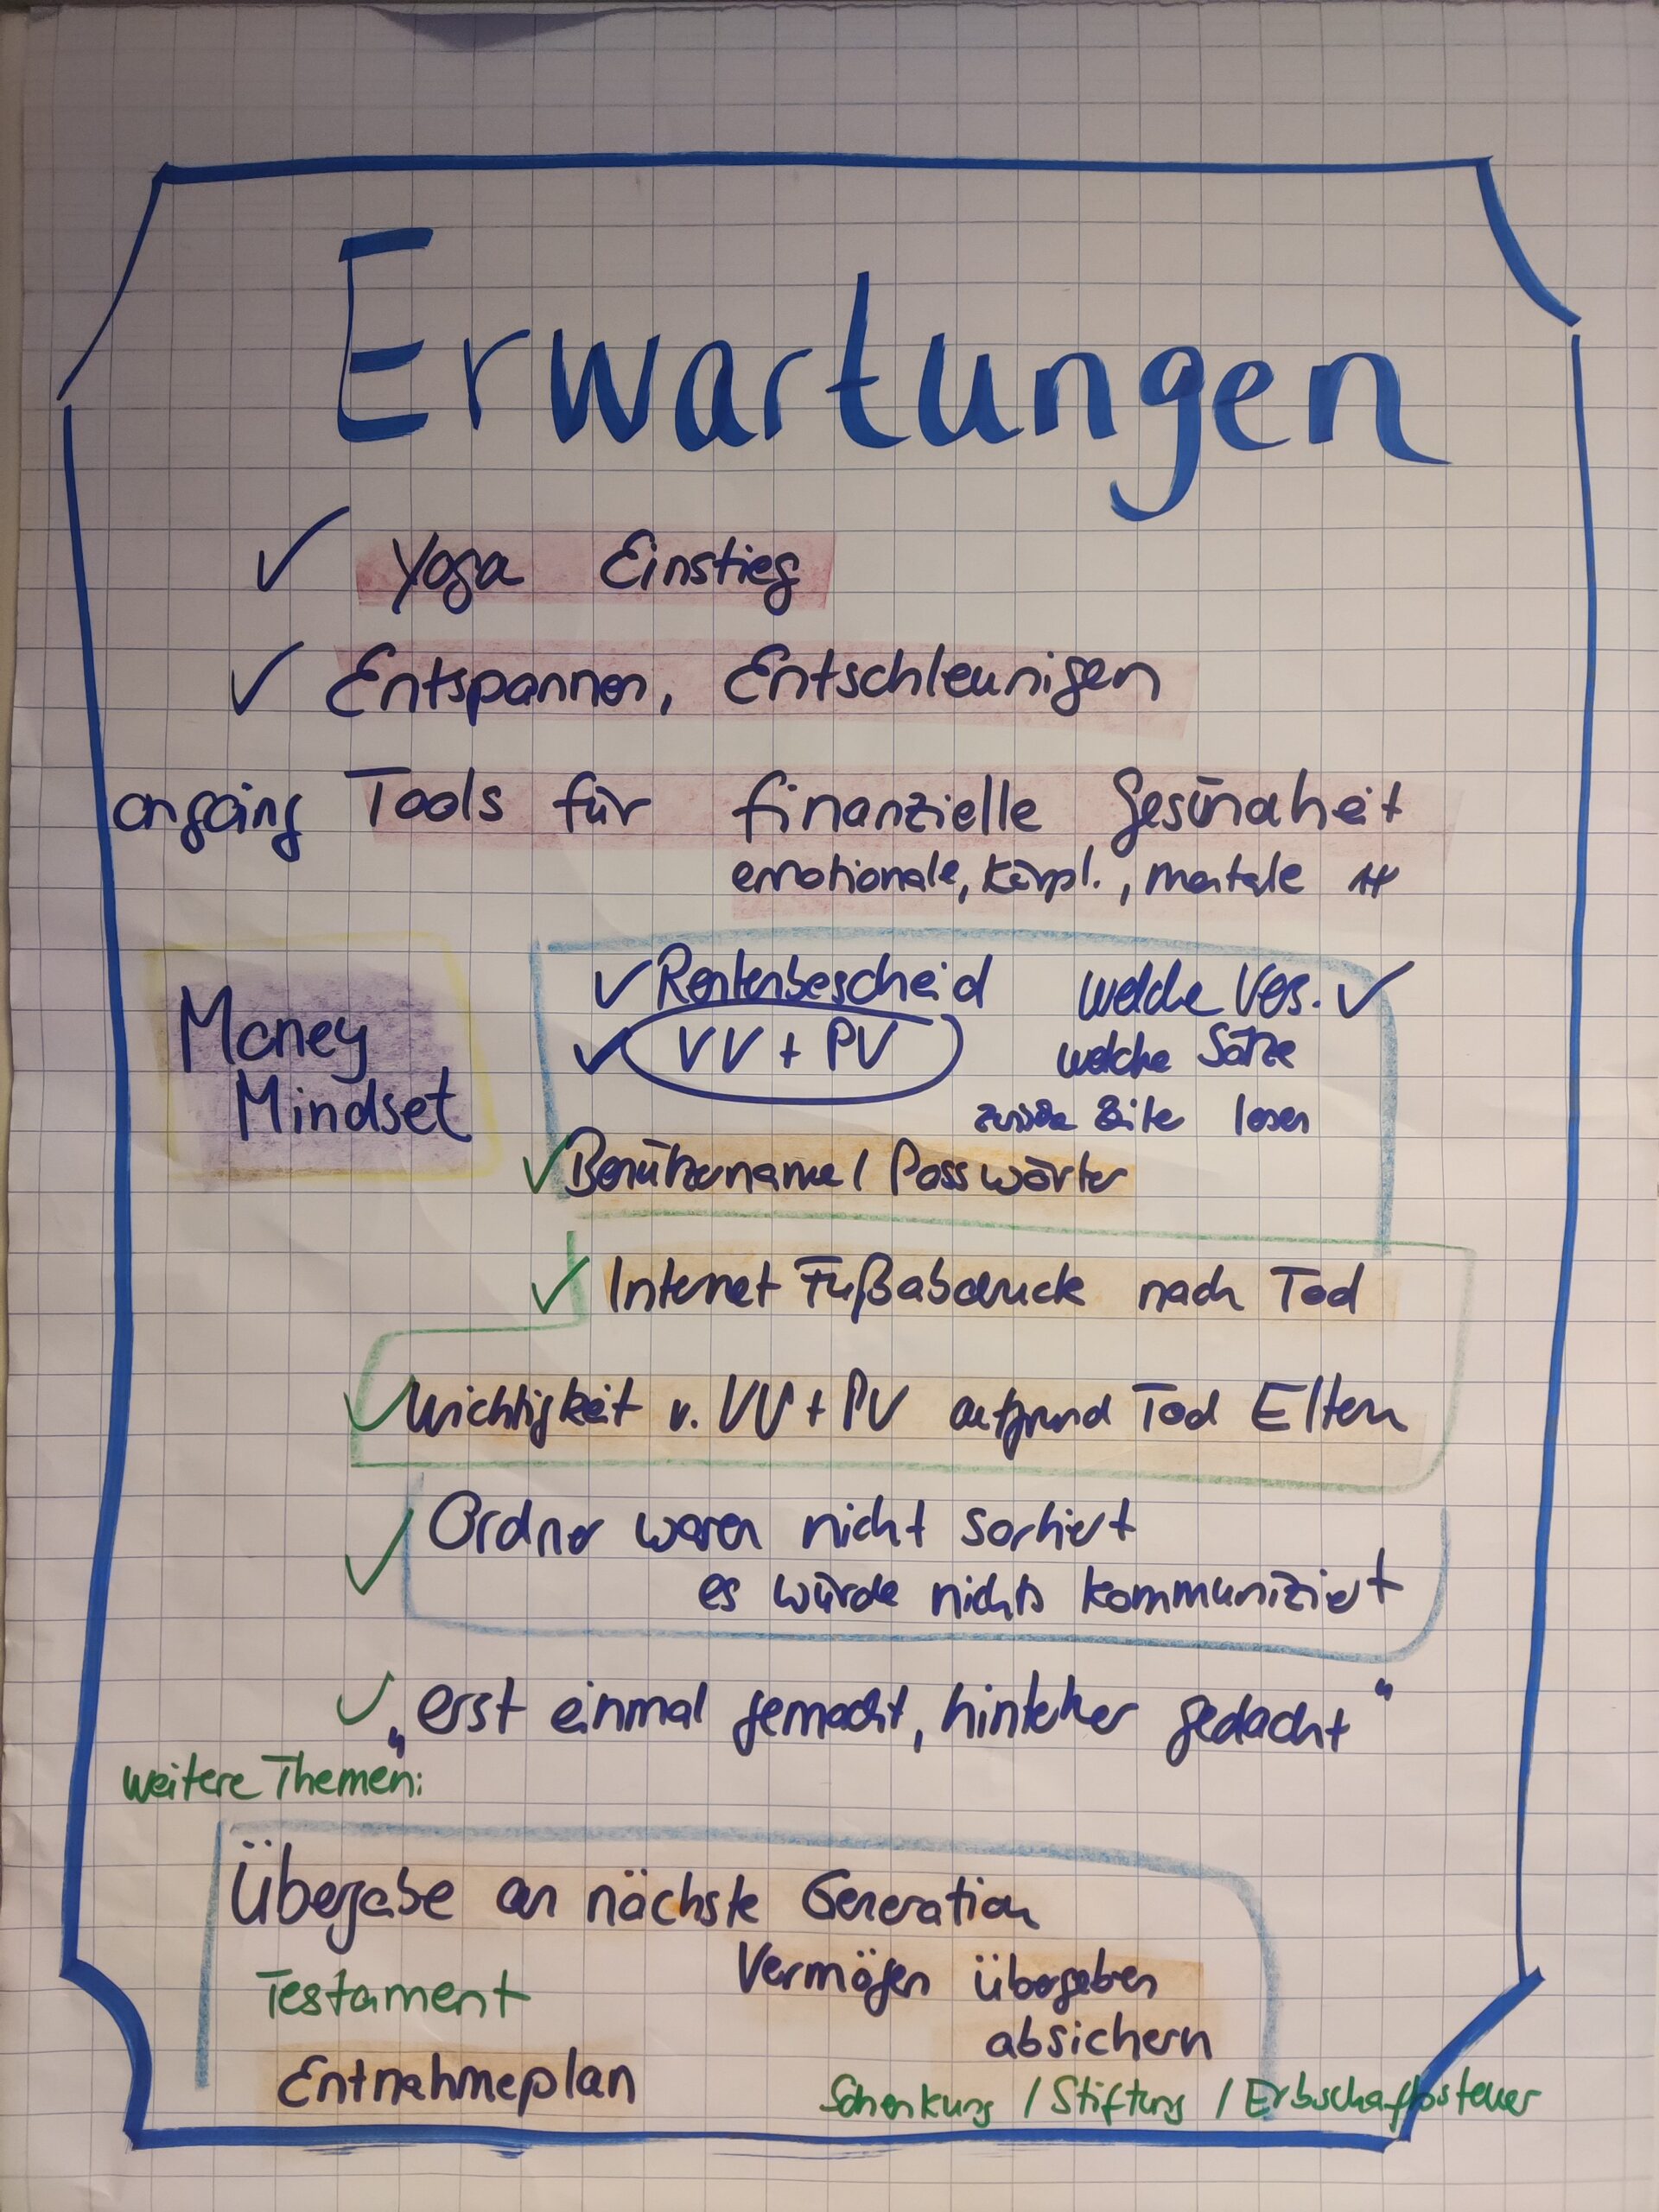 Erwartungen
✓ Yoga Einstieg
✓ Entspannen, Entschleunigen
ongoing Tools für finanzielle Gesundheit
emotionale, körpl., mentale
Money
Mindset
✓ Rentenbescheid
✓ VV + PV
welche Vers. ✓
welche Sätze
Seite lesen
✓ Benutzername / Passwörter
✓ Internet Fußabdruck nach Tod
✓ Wichtigkeit v. VV + PV aufgrund Tod Eltern
✓ Ordner waren nicht sortiert
es würde nichts kommuniziert
✓ „erst einmal gemacht, hinterher gedacht"
weitere Themen:
Übergabe an nächste Generation
Testament
Vermögen übergeben
absichern
Entnahmeplan
Schenkung / Stiftung / Erbschaftssteuer